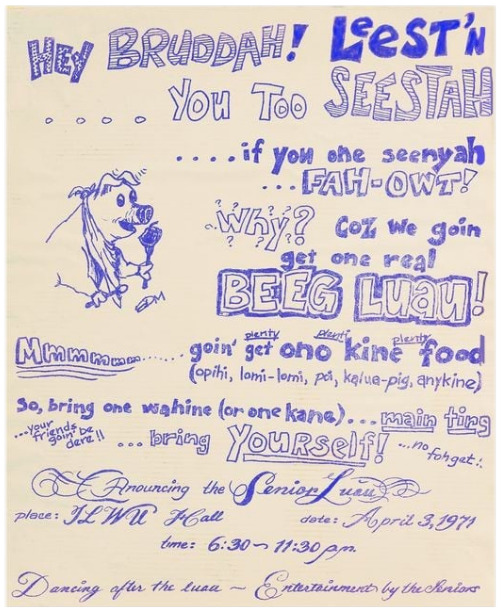 HEY BRUDDAH! LeesT'N
.... YOU TOO SEESTAH
....if you one seenyah
...FAH-OWT!
??Why???
Coz we goin
get one real
BEEG LUAU!
plenty plenti plenty
Mmmmmmm...... goin' get ono kine food
(opihi, lomi-lomi, poi, kalua-pig, anykine)
So, bring one wahine (or one kane)...main ting
...your friends goin' be dere!! ...bring YOURSELF! ...no fahget..
Anouncing the Senior Luau
place: ILWU Hall date: April 3, 1971
time: 6:30 ~ 11:30 p.m.
Dancing after the luau ~ Entertainment by the Seniors